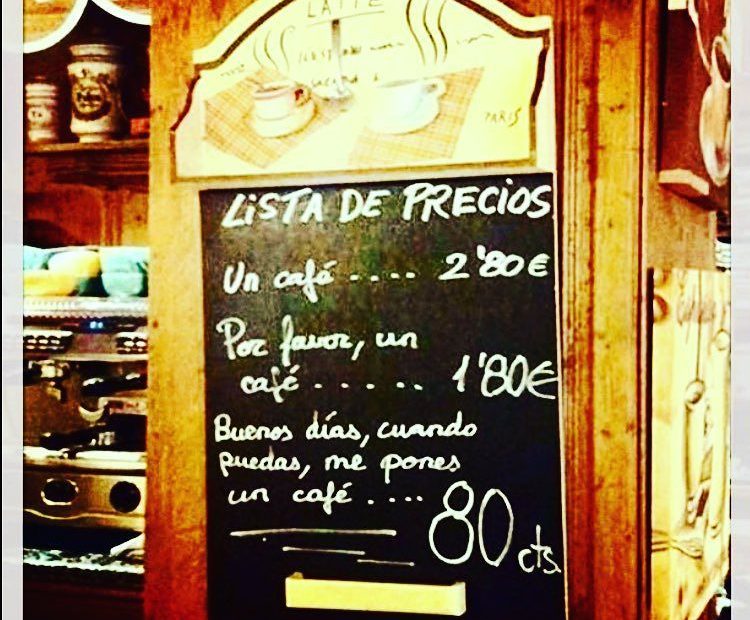 LATTE
PARIS
LiSTA DE PRECiOS
Un café .... 2'80€
Por favor, un
café ...... 1'80€
Buenos días, cuando
puedas, me pones
un café .... 80 cts.